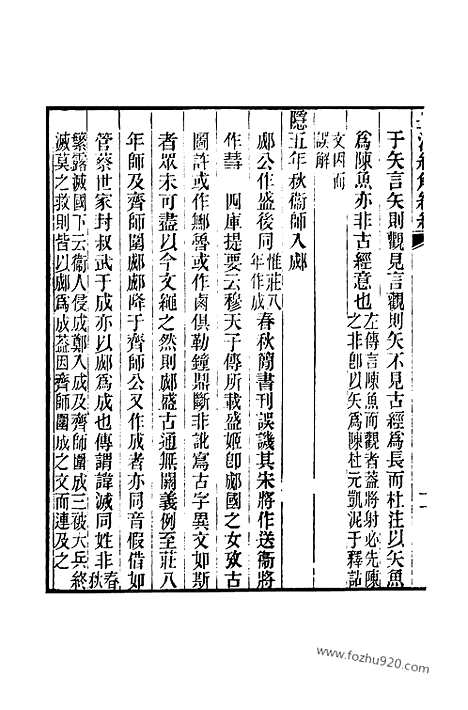 于矢言矢則觀見言觀則矢不見古經爲長而杜注以矢魚
爲陳魚亦非古經意也左傳言陳魚而觀者葢將射必先陳
之非卽以矢爲陳杜元凱泥于釋詁
文因而
誤解
隱五年秋衞師入郕
郕公作盛後同惟莊八
年作成春秋簡書刊誤譏其朱將作送衞將
作彗　四庫提要云穆天子傳所載盛姬卽郕國之女攷古
圖許或作鄦魯或作鹵俱勒鐘鼎斷非訛寫古字異文如斯
者眾未可盡以今文繩之然則郕盛古通無關義例至莊八
年師及齊師圍郕郕降于齊師公又作成者亦同音假借如
管蔡世家封叔武于成亦以郕爲成也傳謂諱滅同姓非春
秋
繁露滅國下云衞人侵成鄭入成及齊師圍成三破大兵終
滅莫之救則皆以郕爲成葢因齊師圍成之文而連及之
www.fozhu920.com